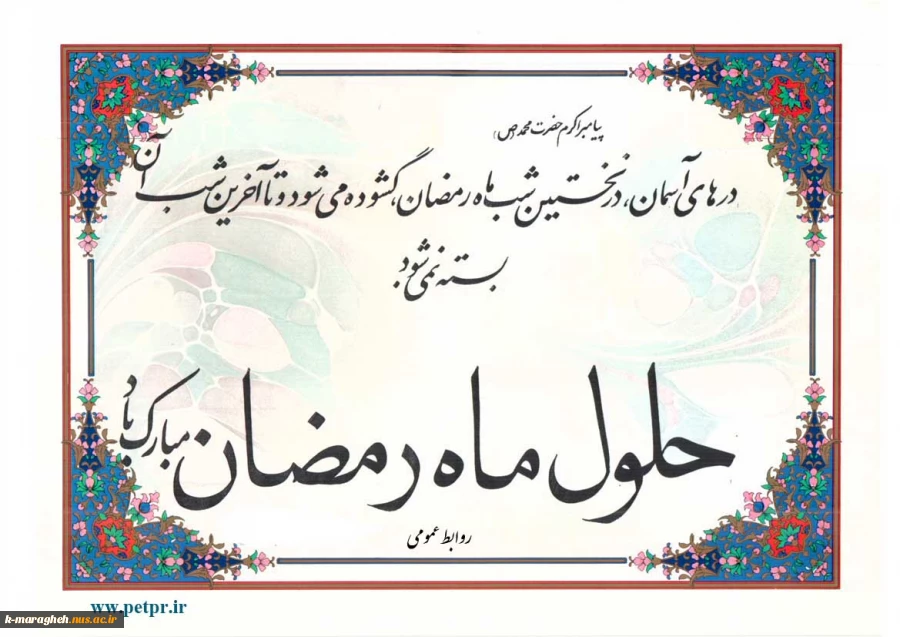 پیامبر اکرم حضرت محمد (ص)
درهای آسمان، در نخستین شب ماه رمضان، گشوده می شود و تا آخرین شب آن
بسته نمی شود
حلول ماه رمضان مبارک باد
روابط عمومی
ww.petpr.ir
k-maragheh.nus.ac.ir